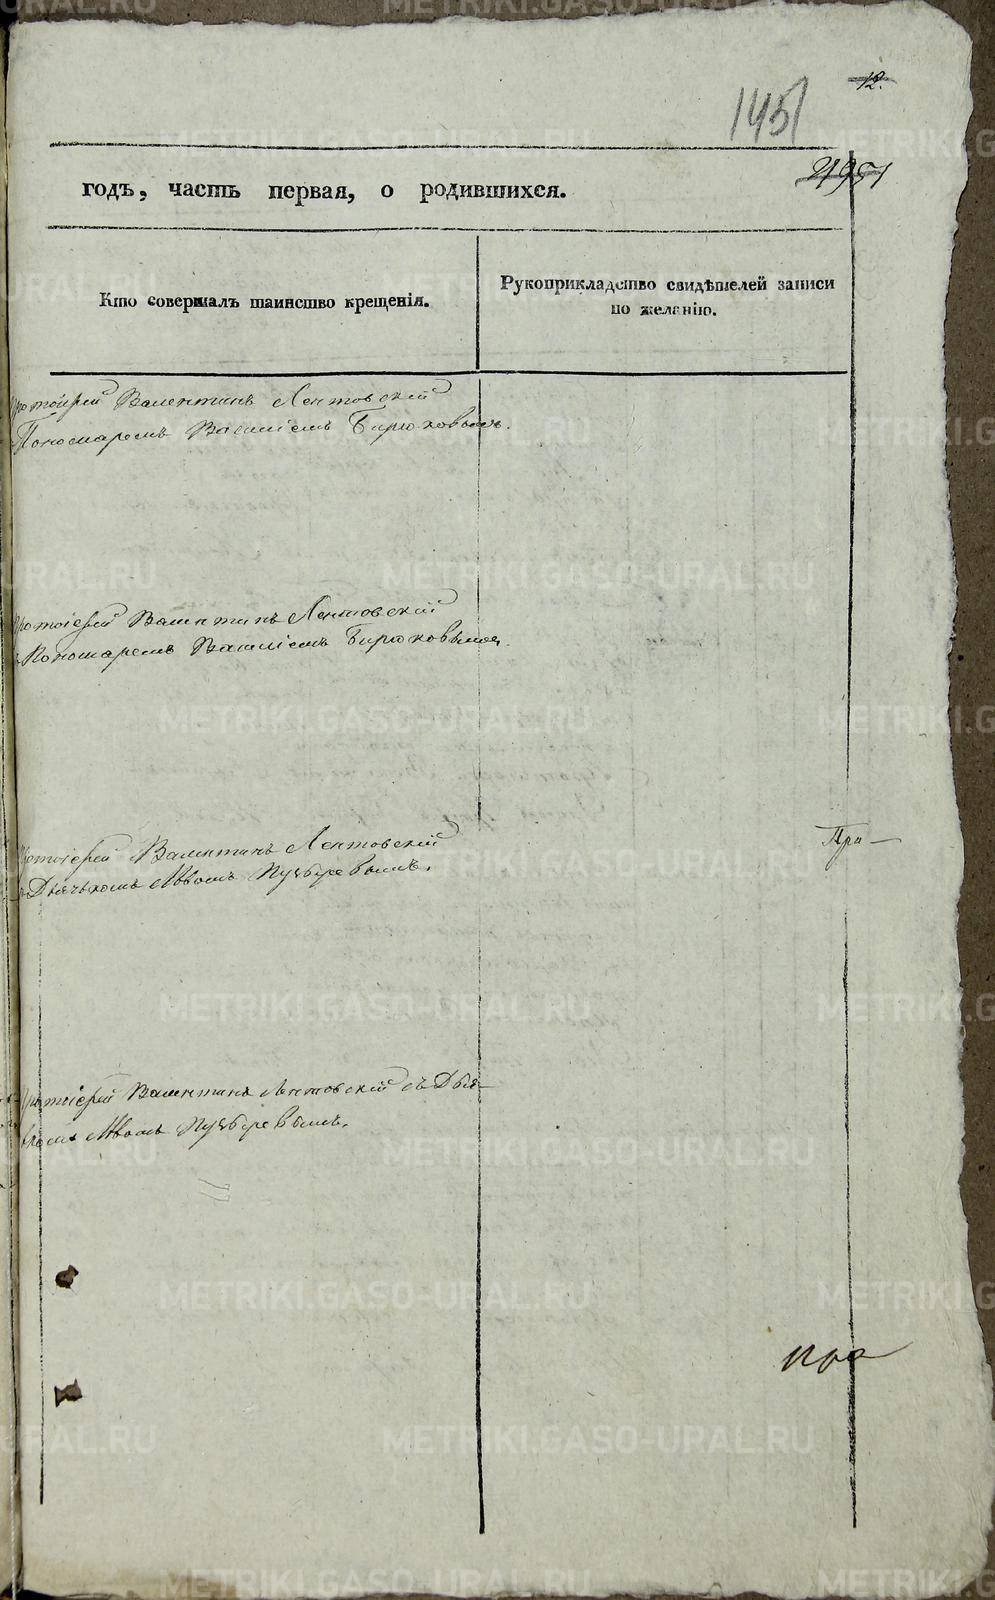 12.
1451
годъ, часть первая, о родившихся.
Кто совершалъ таинство крещенія.
Рукоприкладство свидѣтелей записи
по желанію.
Протоіерей Валентинъ Лентовскій
Пономаремъ Василіемъ Бирюковымъ.
Протоіерей Валентинъ Лентовскій
Пономаремъ Василіемъ Бирюковымъ.
Протоіерей Валентинъ Лентовскій
Дьячькомъ Львомъ
При
Протоіерей Валентинъ Лентовскій съ Дья-
комъ Львомъ
METRIKI.GASO-URAL.RU